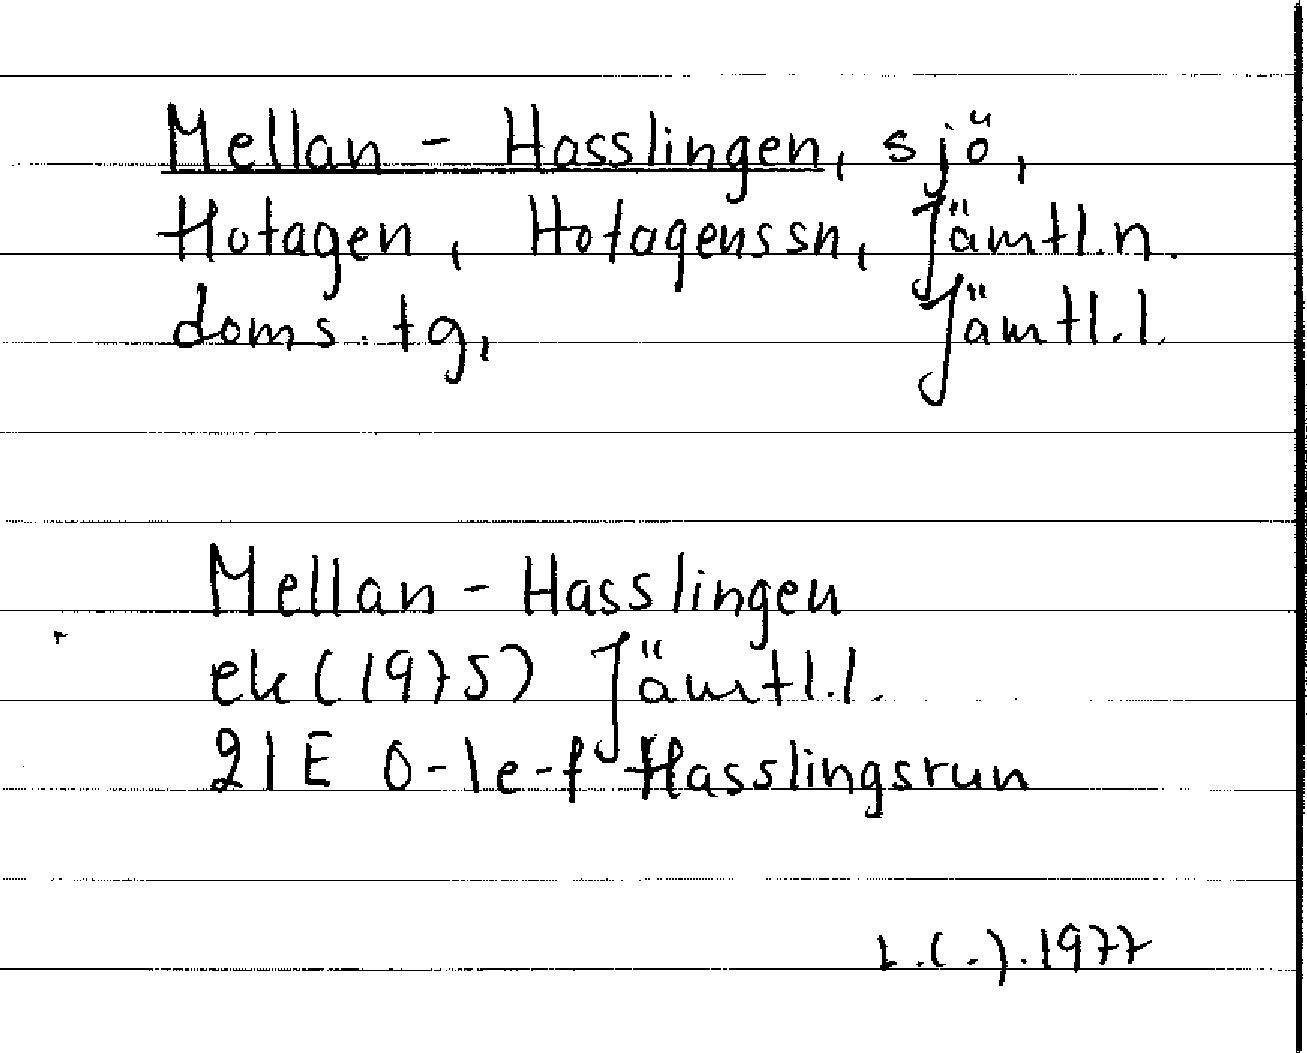 Mellan - Hasslingen, sjö,
Hotagen, Hotagenssn, Jämtl.n.
doms. tg, Jämtl.l.
Mellan - Hasslingen
ek (1975) Jämtl.l.
21E 0-1e-f Hasslingsrun
1977